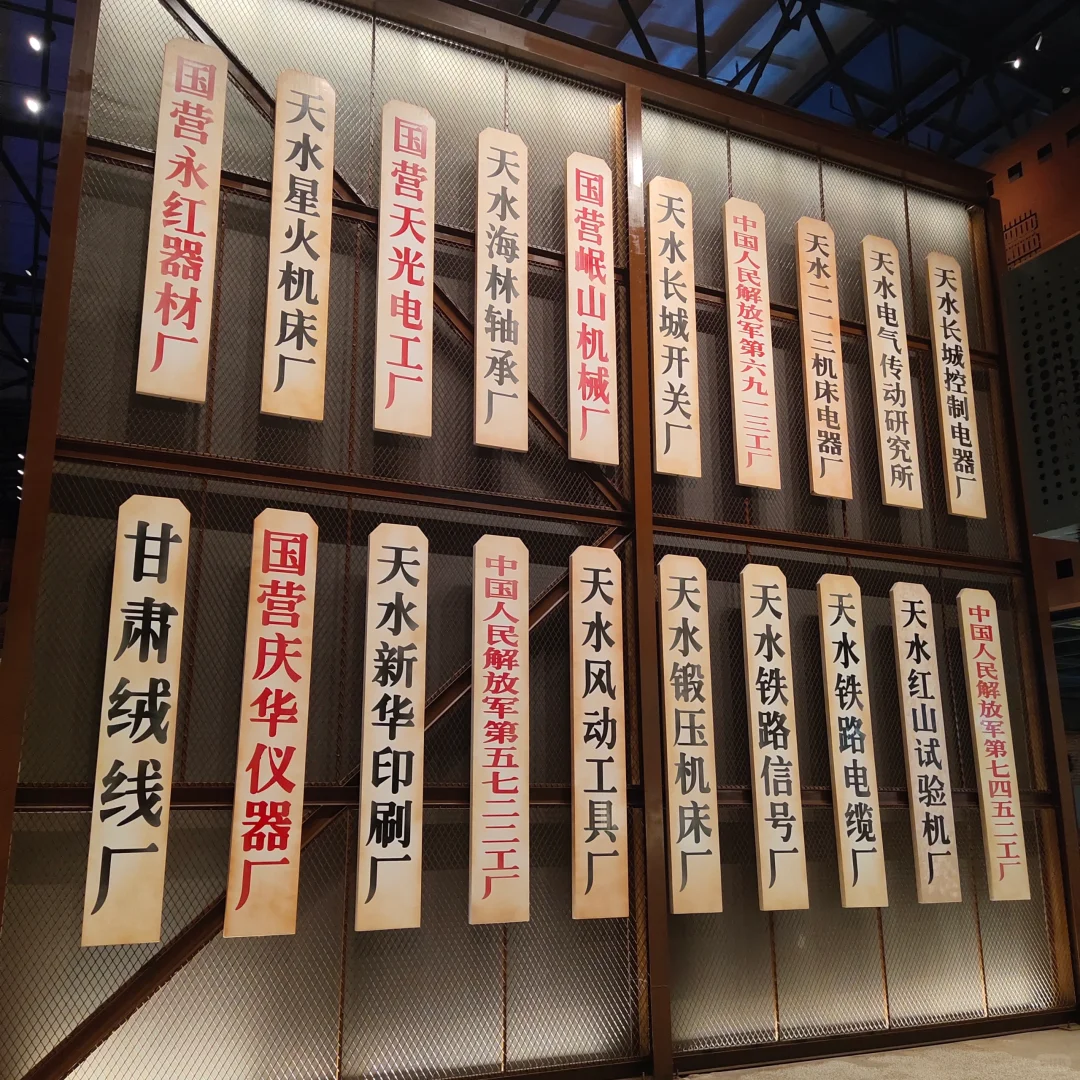 国营永红器材厂
天水星火机床厂
国营天光电工厂
天水海林轴承厂
国营岷山机械厂
天水长城开关厂
中国人民解放军第六九一三工厂
天水二一三机床电器厂
天水电气传动研究所
天水长城控制电器厂
甘肃绒线厂
国营庆华仪器厂
天水新华印刷厂
中国人民解放军第五七二二工厂
天水风动工具厂
天水锻压机床厂
天水铁路信号厂
天水铁路电缆厂
天水红山试验机厂
中国人民解放军第七四五二工厂